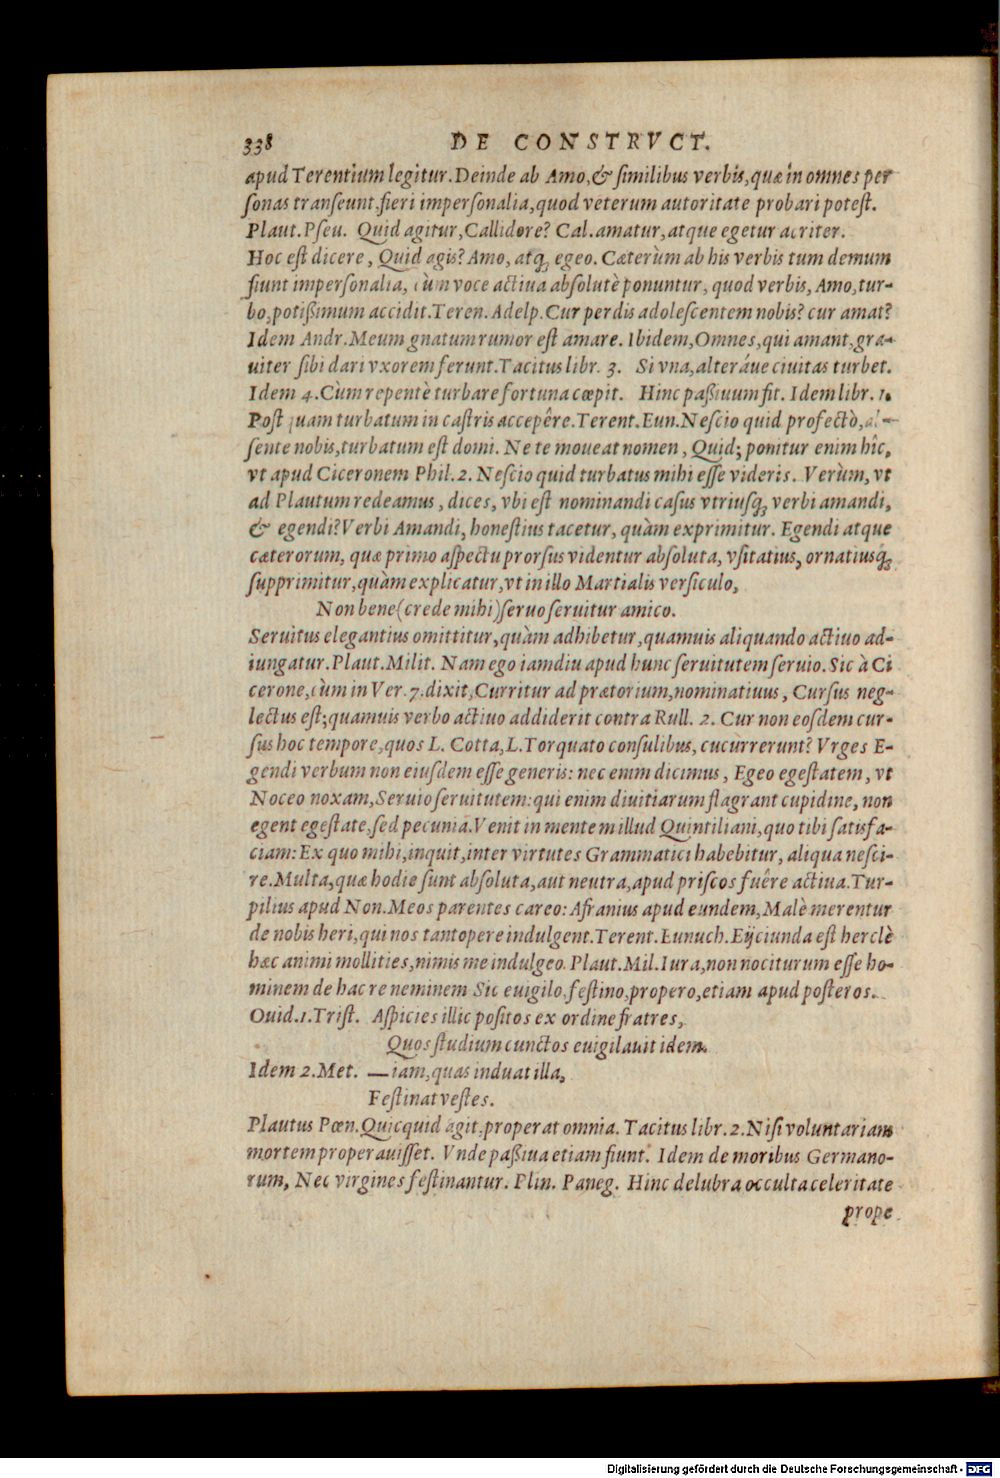 338 DE CONSTRVCT.
apud Terentium legitur. Deinde ab Amo, & similibus verbis, quæ in omnes per
sonas transeunt, fieri impersonalia, quod veterum autoritate probari potest.
Plaut. Pseu. Quid agitur, Callidore? Cal. amatur, atque egetur acriter.
Hoc est dicere, Quid agis? Amo, atq; egeo. Cæterùm ab his verbis tum demum
fiunt impersonalia, cùm voce actiua absolutè ponuntur, quod verbis, Amo, tur-
bo, potißimum accidit. Teren. Adelp. Cur perdis adolescentem nobis? cur amat?
Idem Andr. Meum gnatum rumor est amare. Ibidem, Omnes, qui amant, gra-
uiter sibi dari vxorem ferunt. Tacitus libr. 3. Si vna, alteráue ciuitas turbet.
Idem 4. Cùm repentè turbare fortuna cœpit. Hinc paßiuum fit. Idem libr. 1.
Post quam turbatum in castris accepêre. Terent. Eun. Nescio quid profectò, ab-
sente nobis, turbatum est domi. Ne te moueat nomen, Quid; ponitur enim hîc,
vt apud Ciceronem Phil. 2. Nescio quid turbatus mihi esse videris. Verùm, vt
ad Plautum redeamus, dices, vbi est nominandi casus vtriusq; verbi amandi,
& egendi? Verbi Amandi, honestius tacetur, quàm exprimitur. Egendi atque
cæterorum, quæ primo aspectu prorsus videntur absoluta, vsitatius, ornatiusq́;
supprimitur, quàm explicatur, vt in illo Martialis versiculo,
Non bene (crede mihi) seruo seruitur amico.
Seruitus elegantius omittitur, quàm adhibetur, quamuis aliquando actiuo ad-
iungatur. Plaut. Milit. Nam ego iamdiu apud hunc seruitutem seruio. Sic à Ci
cerone, cùm in Ver. 7. dixit, Curritur ad prætorium, nominatiuus, Cursus neg-
lectus est; quamuis verbo actiuo addiderit contra Rull. 2. Cur non eosdem cur-
sus hoc tempore, quos L. Cotta, L. Torquato consulibus, cucurrerunt? Vrges E-
gendi verbum non eiusdem esse generis: nec enim dicimus, Egeo egestatem, vt
Noceo noxam, Seruio seruitutem: qui enim diuitiarum flagrant cupidine, non
egent egestate, sed pecunia. Venit in mentem illud Quintiliani, quo tibi satisfa-
ciam: Ex quo mihi, inquit, inter virtutes Grammatici habebitur, aliqua nesci-
re. Multa, quæ hodie sunt absoluta, aut neutra, apud priscos fuêre actiua. Tur-
pilius apud Non. Meos parentes careo: Afranius apud eundem, Malè merentur
de nobis heri, qui nos tantopere indulgent. Terent. Eunuch. Eijciunda est herclè
hæc animi mollities, nimis me indulgeo. Plaut. Mil. Iura, non nociturum esse ho-
minem de hac re neminem Sic euigilo, festino, propero, etiam apud posteros.
Ouid. 1. Trist. Aspicies illic positos ex ordine fratres,
Quos studium cunctos euigilauit idem.
Idem 2. Met. — iam, quas induat illa,
Festinat vestes.
Plautus Pœn. Quicquid agit, properat omnia. Tacitus libr. 2. Nisi voluntariam
mortem properauisset. Vnde paßiua etiam fiunt. Idem de moribus Germano-
rum, Nec virgines festinantur. Plin. Paneg. Hinc delubra occulta celeritate
prope
Digitalisierung gefördert durch die Deutsche Forschungsgemeinschaft - DFG